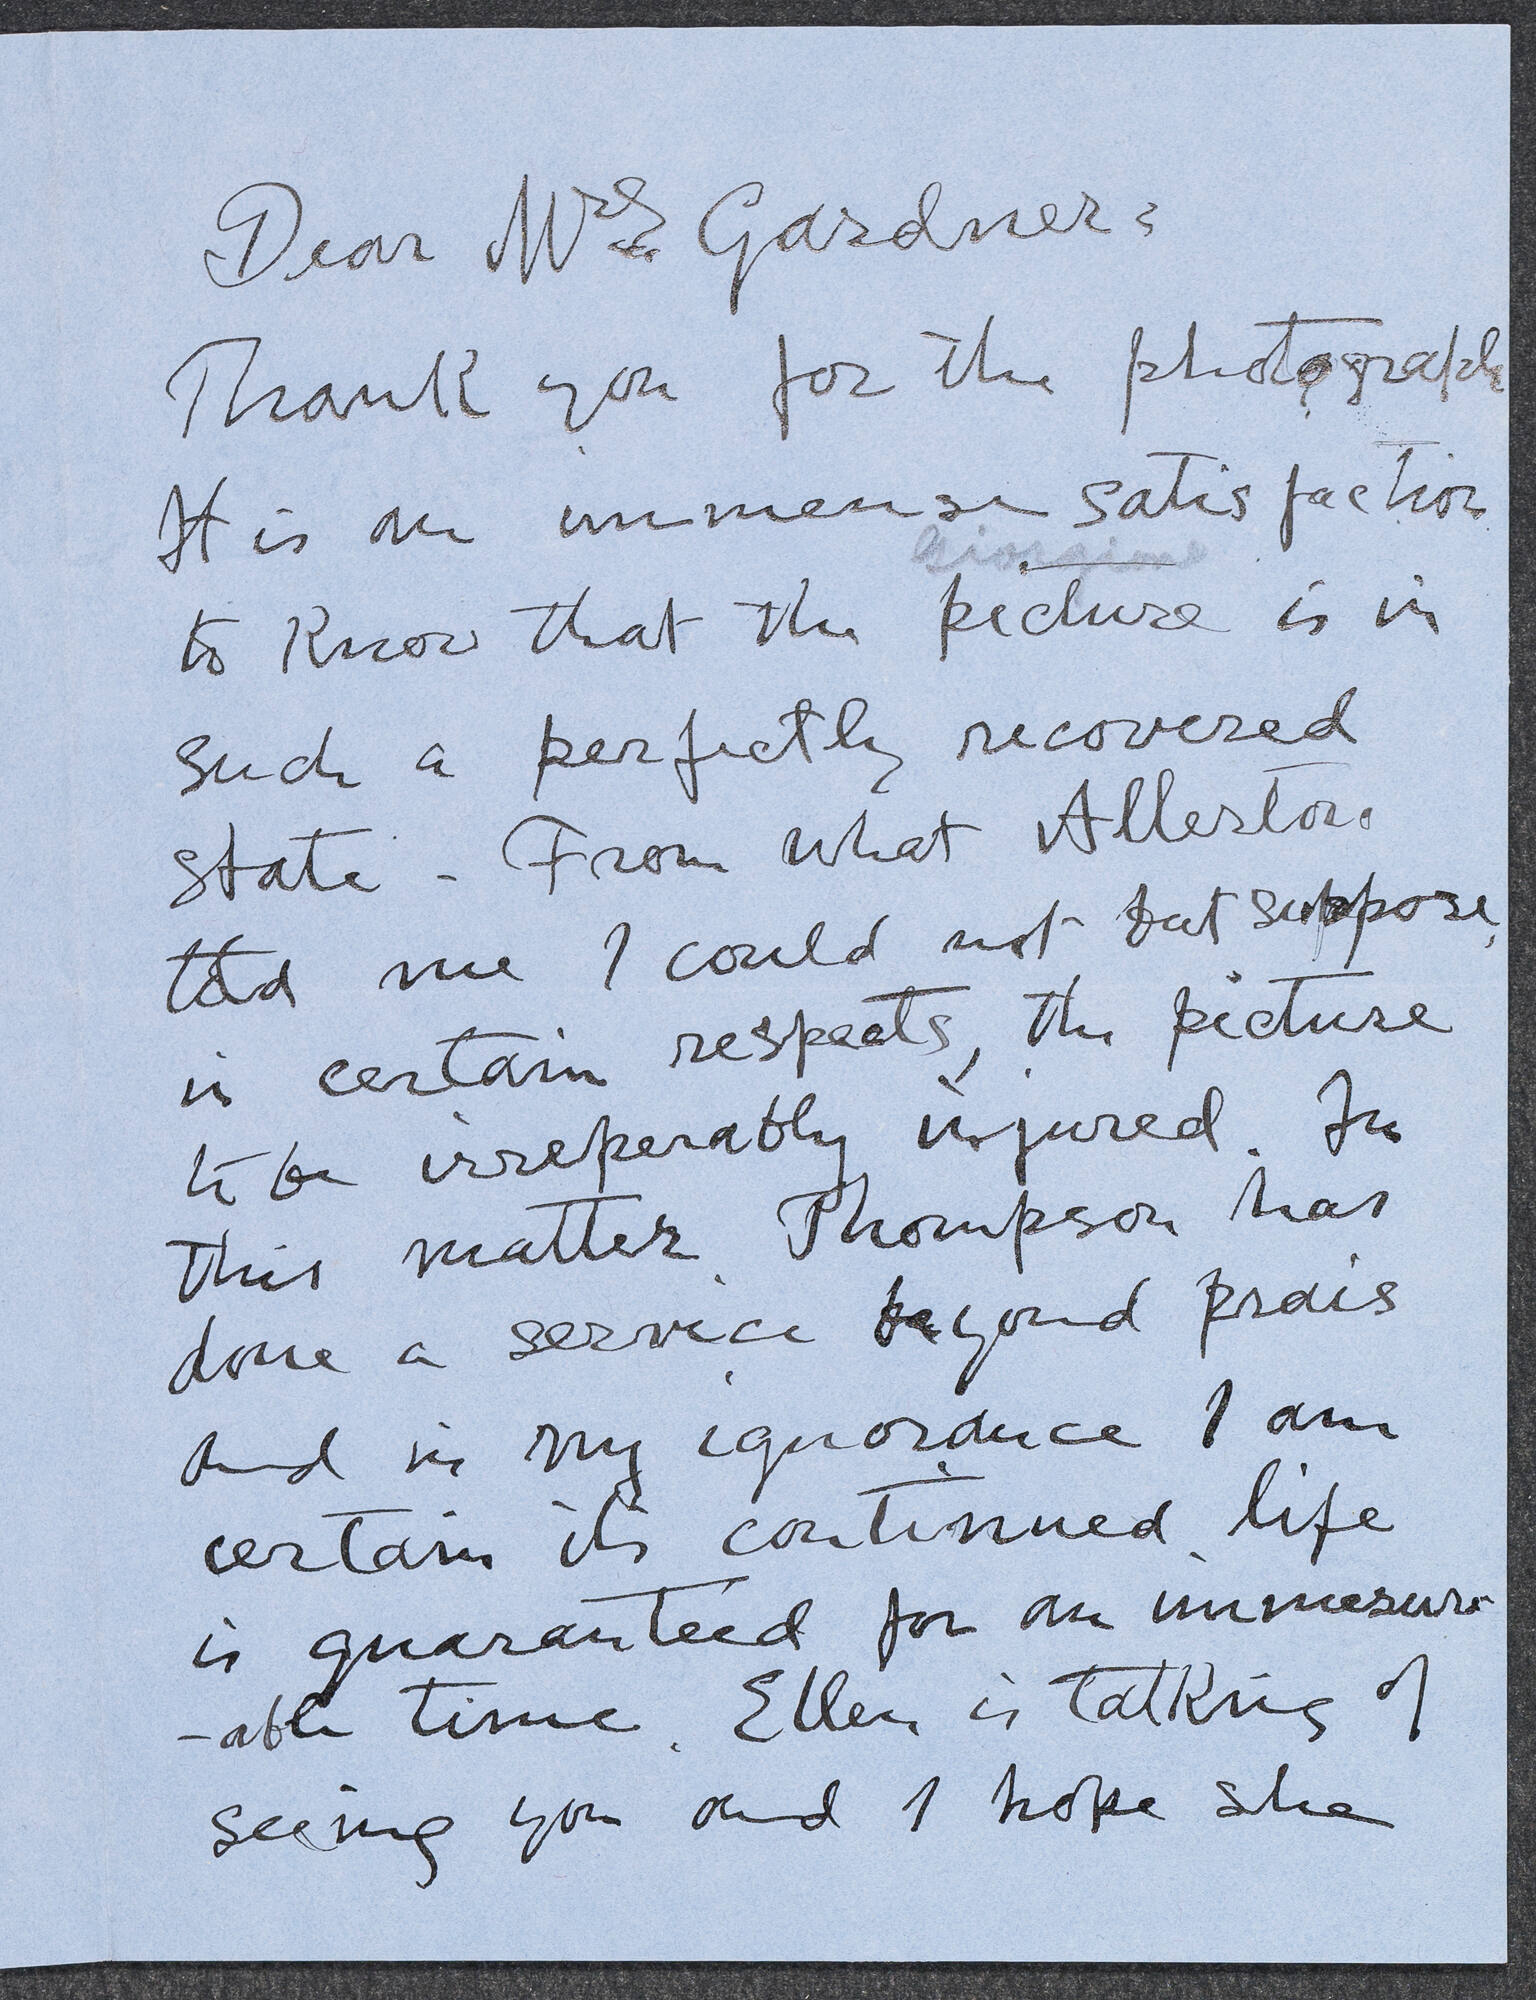 Dear Mrs Gardner:
Thank you for the photograph
It is an immense satisfaction
Giorgione
to Know that the picture is in
such a perfectly recovered
state - From what Allerton
told me I could not but suppose,
in certain respects, the picture
to be irreperably injured. In
this matter Thompson has
done a service beyond prais
And in my ignorance I am
certain its continued life
is guaranteed for an immesur-
-able time. Ellen is talking of
seeing you and I hope she